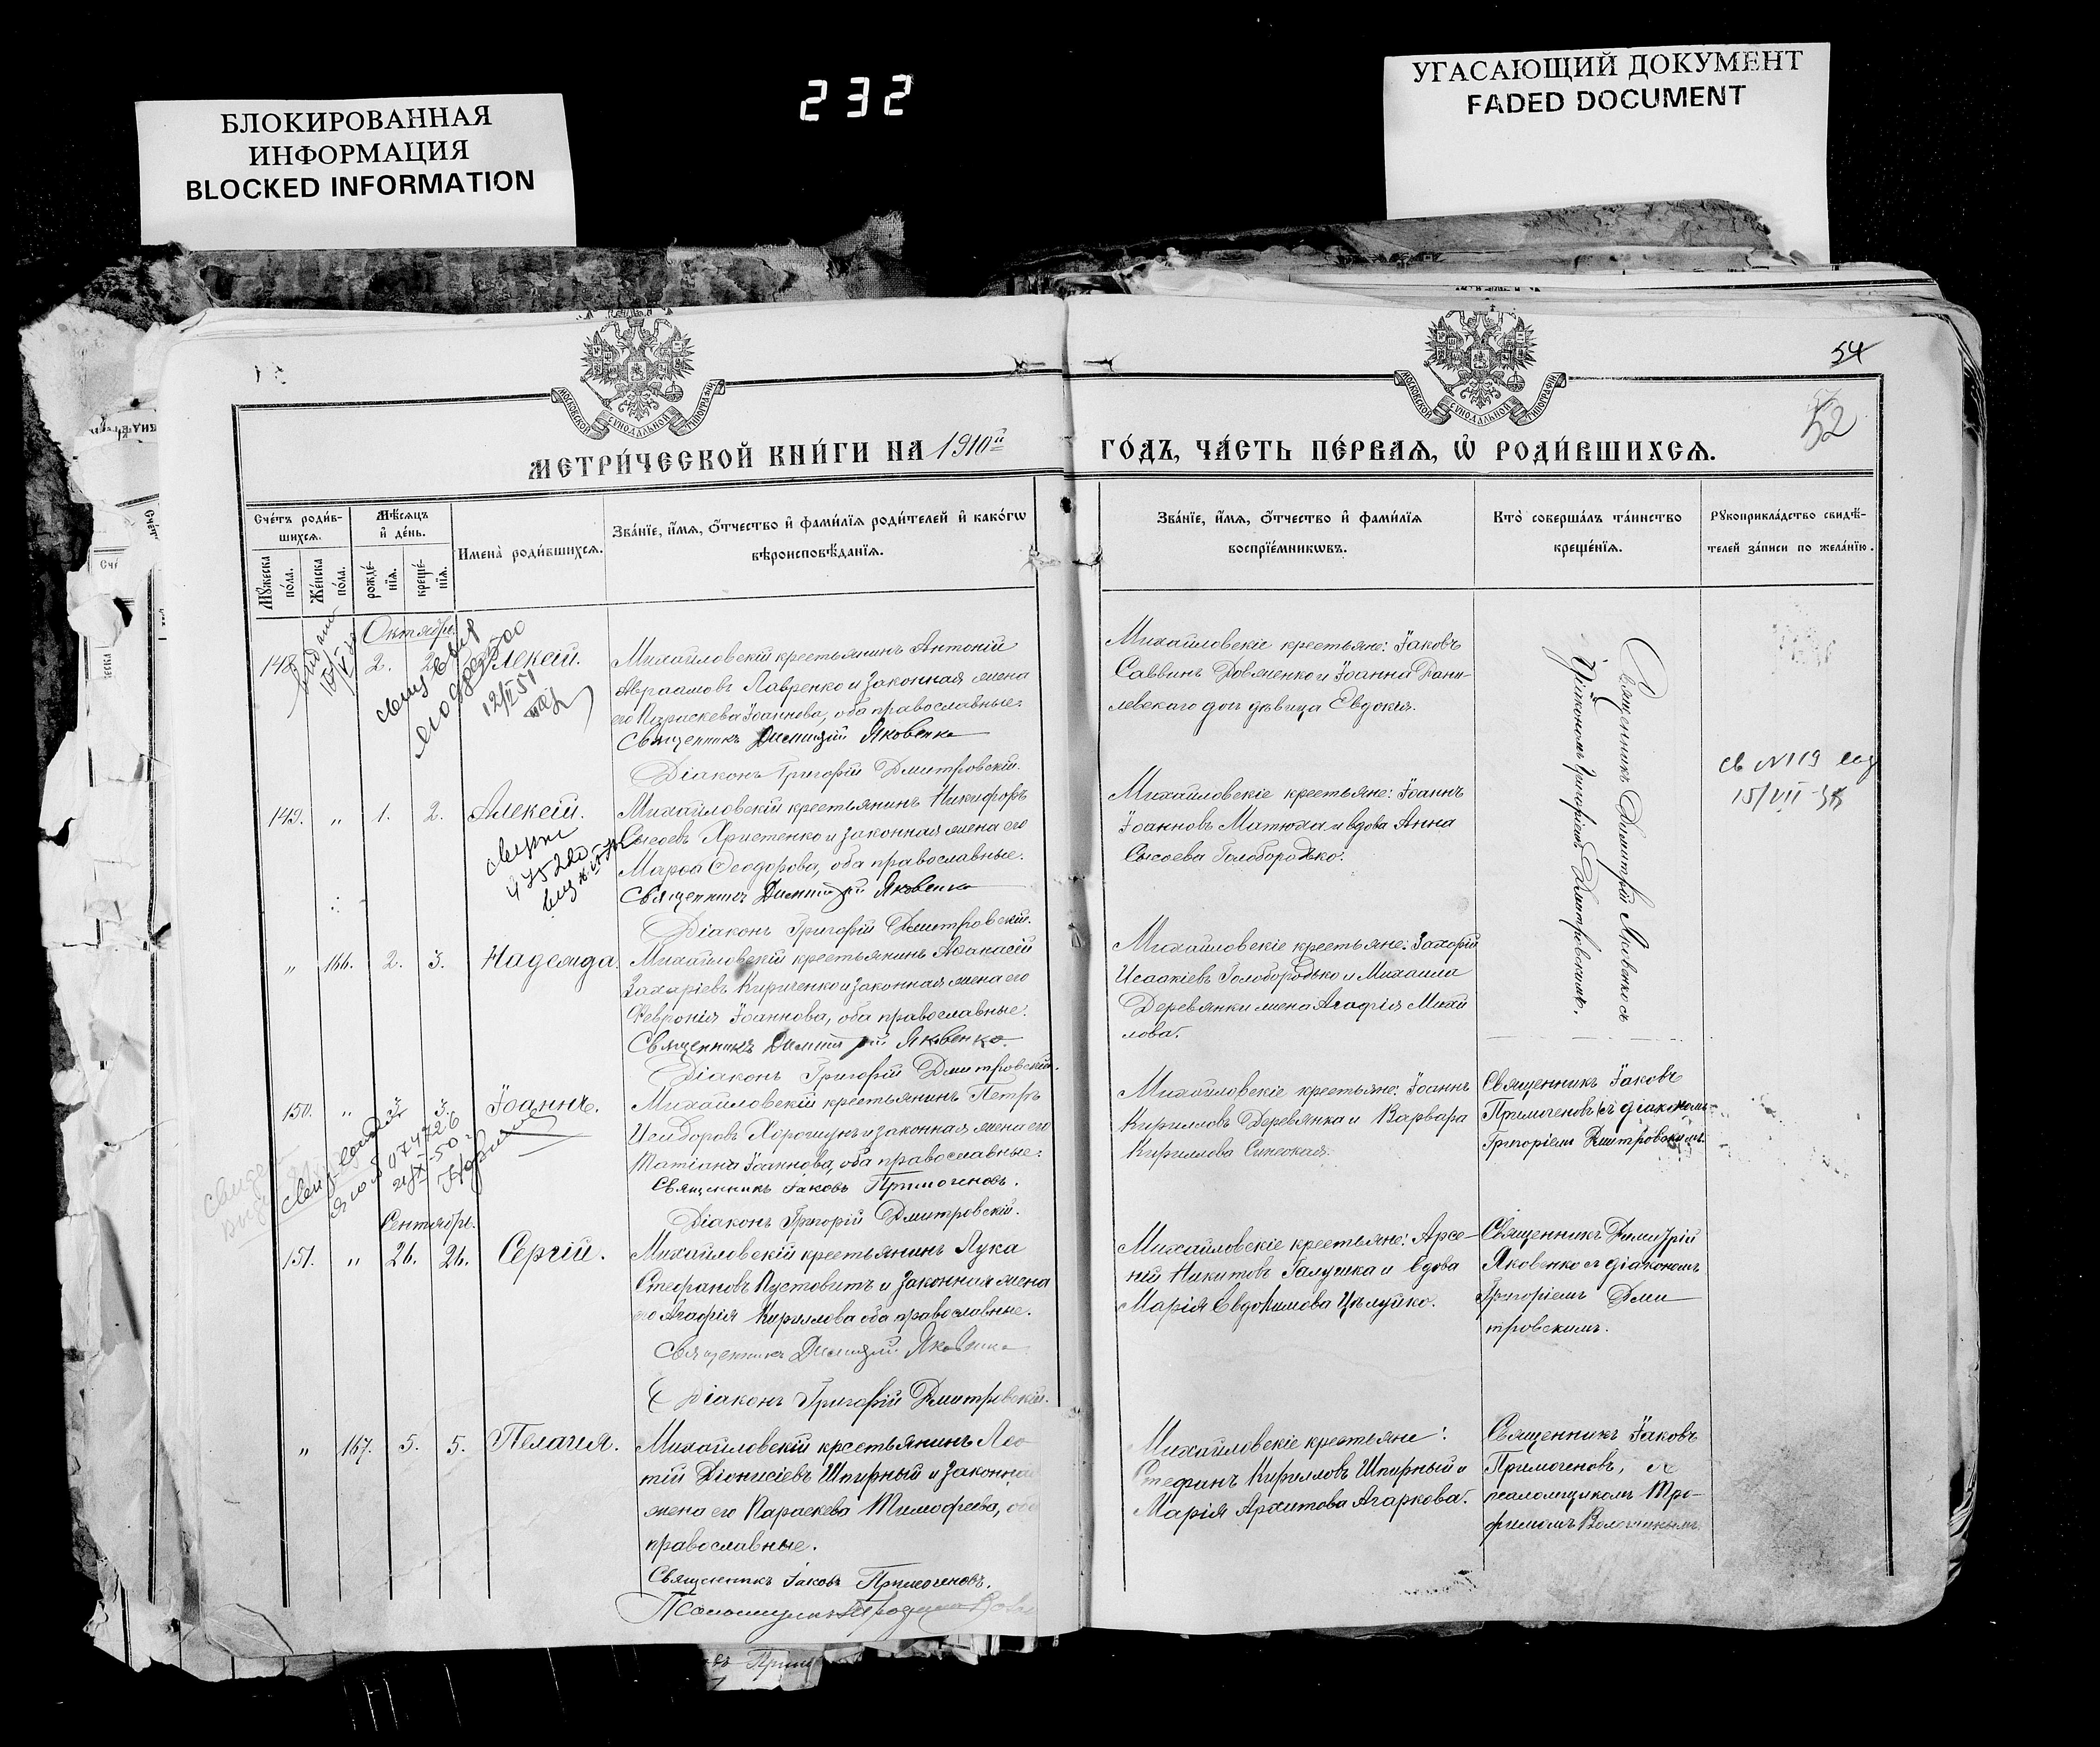 БЛОКИРОВАННАЯ
ИНФОРМАЦИЯ
BLOCKED INFORMATION
232
УГАСАЮЩИЙ ДОКУМЕНТ
FADED DOCUMENT
54
52
МОСКОВСКОЙ СѴНОДАЛЬНОЙ ТИПОГРАФІИ
МОСКОВСКОЙ СѴНОДАЛЬНОЙ ТИПОГРАФІИ
МЕТРИ́ЧЕСКОЙ КНИ́ГИ НА 1910й
ГО́ДЪ, ЧА́СТЬ ПЕ́РВАЯ, Ѡ҆ РОДИ́ВШИХСЯ.
Сче́тъ роди́в-
шихся.
Мѣ́сяцъ
и҆ де́нь.
Мꙋ́жеска
по́ла.
Же́нска
по́ла.
рожде́-
нїя.
креще́-
нїя.
Имена̀ роди́вшихся.
Зва́нїе, и҆́мя, ѻ҆́тчество и҆ фами́лїя роди́телей и҆ како́гѡ
вѣроисповѣ́данїя.
Зва́нїе, и҆́мя, ѻ҆́тчество и҆ фами́лїя
воспрїе́мникѡвъ.
Кто̀ соверша́лъ та́инство
креще́нїя.
Рꙋкоприкла́дство свидѣ́-
телей за́писи по жела́нїю.
Октябрь.
148 2. 2. Алексій.
12/II 51
Михайловскій крестьянинъ Антоній
Авраамовъ Лавренко и законная жена
его Параскева Іоаннова, оба православные.
Священникъ Димитрій Яковенко
Діаконъ Григорій Дмитровскій.
Михайловскіе крестьяне: Іаковъ
Саввинъ Довженко и Іоанна Дани-
левскаго дочь дѣвица Евдокія.
Священникъ Димитрій Яковенко съ
діакономъ Григоріемъ Дмитровскимъ.
149. „ 1. 2. Алексій.
Михайловскій крестьянинъ Никифоръ
Сысоевъ Христенко и законная жена его
Марѳа Ѳеодорова, оба православные.
Священникъ Димитрій Яковенко
Діаконъ Григорій Дмитровскій.
Михайловскіе крестьяне: Іоаннъ
Іоанновъ Матюха и вдова Анна
Сысоева Голобородько.
св N 119
15/VII
„ 166. 2. 3. Надежда.
Михайловскій крестьянинъ Аѳанасій
Захаріевъ Кириченко и законная жена его
Февронія Іоаннова, оба православные.
Священникъ Димитрій Яковенко
Діаконъ Григорій Дмитровскій.
Михайловскіе крестьяне: Захарій
Исаакіевъ Голобородько и Михаила
Деревянки жена Агафія Михай
лова.
150. „ 3. 3. Іоаннъ.
Михайловскій крестьянинъ Петръ
Исидоровъ Хорошунъ и законная жена его
Татіана Іоаннова, оба православные.
Священникъ Іаковъ Примогеновъ.
Діаконъ Григорій Дмитровскій.
Михайловскіе крестьяне: Іоаннъ
Кирилловъ Деревянка и Варвара
Кириллова Синеокая.
Священникъ Іаковъ
Примогеновъ съ діакономъ
Григоріемъ Дмитровскимъ
Сентябрь.
151. „ 26. 26. Сергій.
Михайловскій крестьянинъ Лука
Стефановъ Пустовитъ и законная жена
его Агафія Кириллова оба православные.
Священникъ Димитрій Яковенко
Діаконъ Григорій Дмитровскій.
Михайловскіе крестьяне: Арсе-
ній Никитовъ Галушка и вдова
Марія Евдокимова Цѣлуйко.
Священникъ Димитрій
Яковенко съ діакономъ
Григоріемъ Дми
тровскимъ.
„ 167. 5. 5. Пелагія.
Михайловскій крестьянинъ Лео
тій Діонисіевъ Шпирный и законная
жена его Параскева Тимофеева, оба
православные.
Священникъ Іаковъ Примогеновъ.
Псаломщикъ
Михайловскіе крестьяне:
Стефанъ Кирилловъ Шпирный и
Марія Архитова Агаркова.
Священникъ Іаковъ
Примогеновъ, съ
псаломщикомъ Тро-
фимомъ